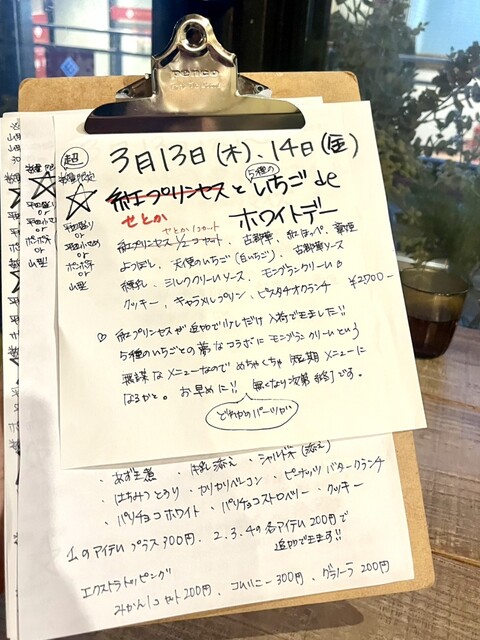 penco
超
数量限定
3月13日(木)、14日(金)
5種の
紅プリンセスといちごde
せとか
ホワイトデー
せとか1コカット
紅プリンセス1/2コカット、古都華、紅ほっぺ、
よつぼし、天使のいちご(白いちご)、古都華ソース
練乳、ミルククリームソース、モンブランクリーム
クッキー、キャラメルプリン、ピスタチオクランチ ¥2700-
紅プリンセスが追加で少しだけ入荷できました!!
5種のいちごとの夢なコラボにモンブランクリームという
無謀なメニューなのでめちゃくちゃ短期メニューに
なるかと。お早めに!! 無くなり次第終了です。
どれかのパーツが
・あずき煮 ・練乳添え ・シャルドネ(添え)
・はちみつとろり ・カリカリベーコン ・ピーナッツバタークランチ
・パリチョコホワイト ・パリチョコストロベリー ・クッキー
1のアイテムプラス300円、2.3.4の各アイテム200円で
追加できます!!
エクストラトッピング
みかん1コカット200円、コムハニー300円、グラノーラ200円